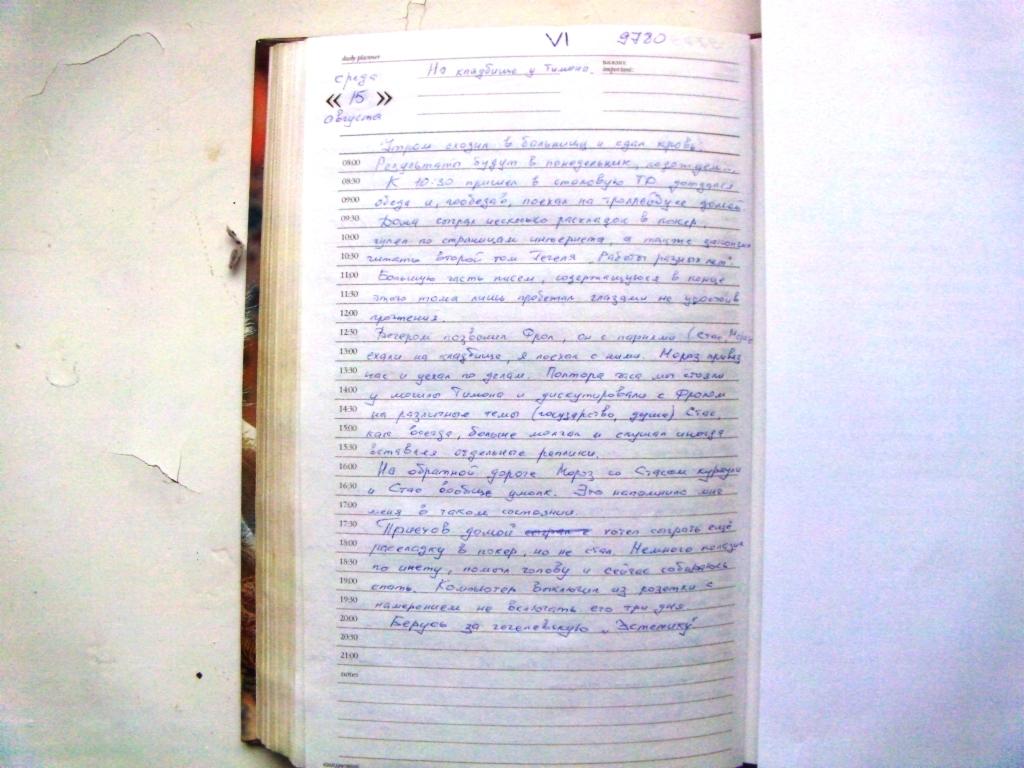 VI 9780
daily planner
важное
important:
На кладбище у Тимона.
среда
« 15 »
августа
Утром сходил в больницу и сдал кровь.
08:00 Результаты будут в понедельник, подождём.
08:30 К 10:30 пришёл в столовую ТД дождался
09:00 обеда и, пообедав, поехал на троллейбусе домой.
09:30 Дома сыграл несколько раскладок в покер,
10:00 гулял по страницам интернета, а также закончил
10:30 читать второй том Гегеля „Работы разных лет".
11:00 Большую часть писем, содержащуюся в конце
11:30 этого тома лишь пробегал глазами не удостоив
12:00 прочтения.
12:30 Вечером позвонил Фрол, он с парнями (Стас, Мороз
13:00 ехали на кладбище, я поехал с ними. Мороз привёз
13:30 нас и уехал по делам. Полтора часа мы стояли
14:00 у могилы Тимона и дискутировали с Фролом
14:30 на различные темы (государство, душа) Стас,
15:00 как всегда, больше молчал и слушал иногда
15:30 вставляя отдельные реплики.
16:00 На обратной дороге Мороз со Стасом курнули
16:30 и Стас вообще умолк. Это напомнило мне
17:00 меня в таком состоянии.
17:30 Приехав домой хотел сыграть ещё
18:00 раскладку в покер, но не стал. Немного полазил
18:30 по инету, помыл голову и сейчас собираюсь
19:00 спать. Компьютер выключил из розетки с
19:30 намерением не включать его три дня.
20:00 Берусь за гегелевскую „Эстетику"
20:30
21:00
notes